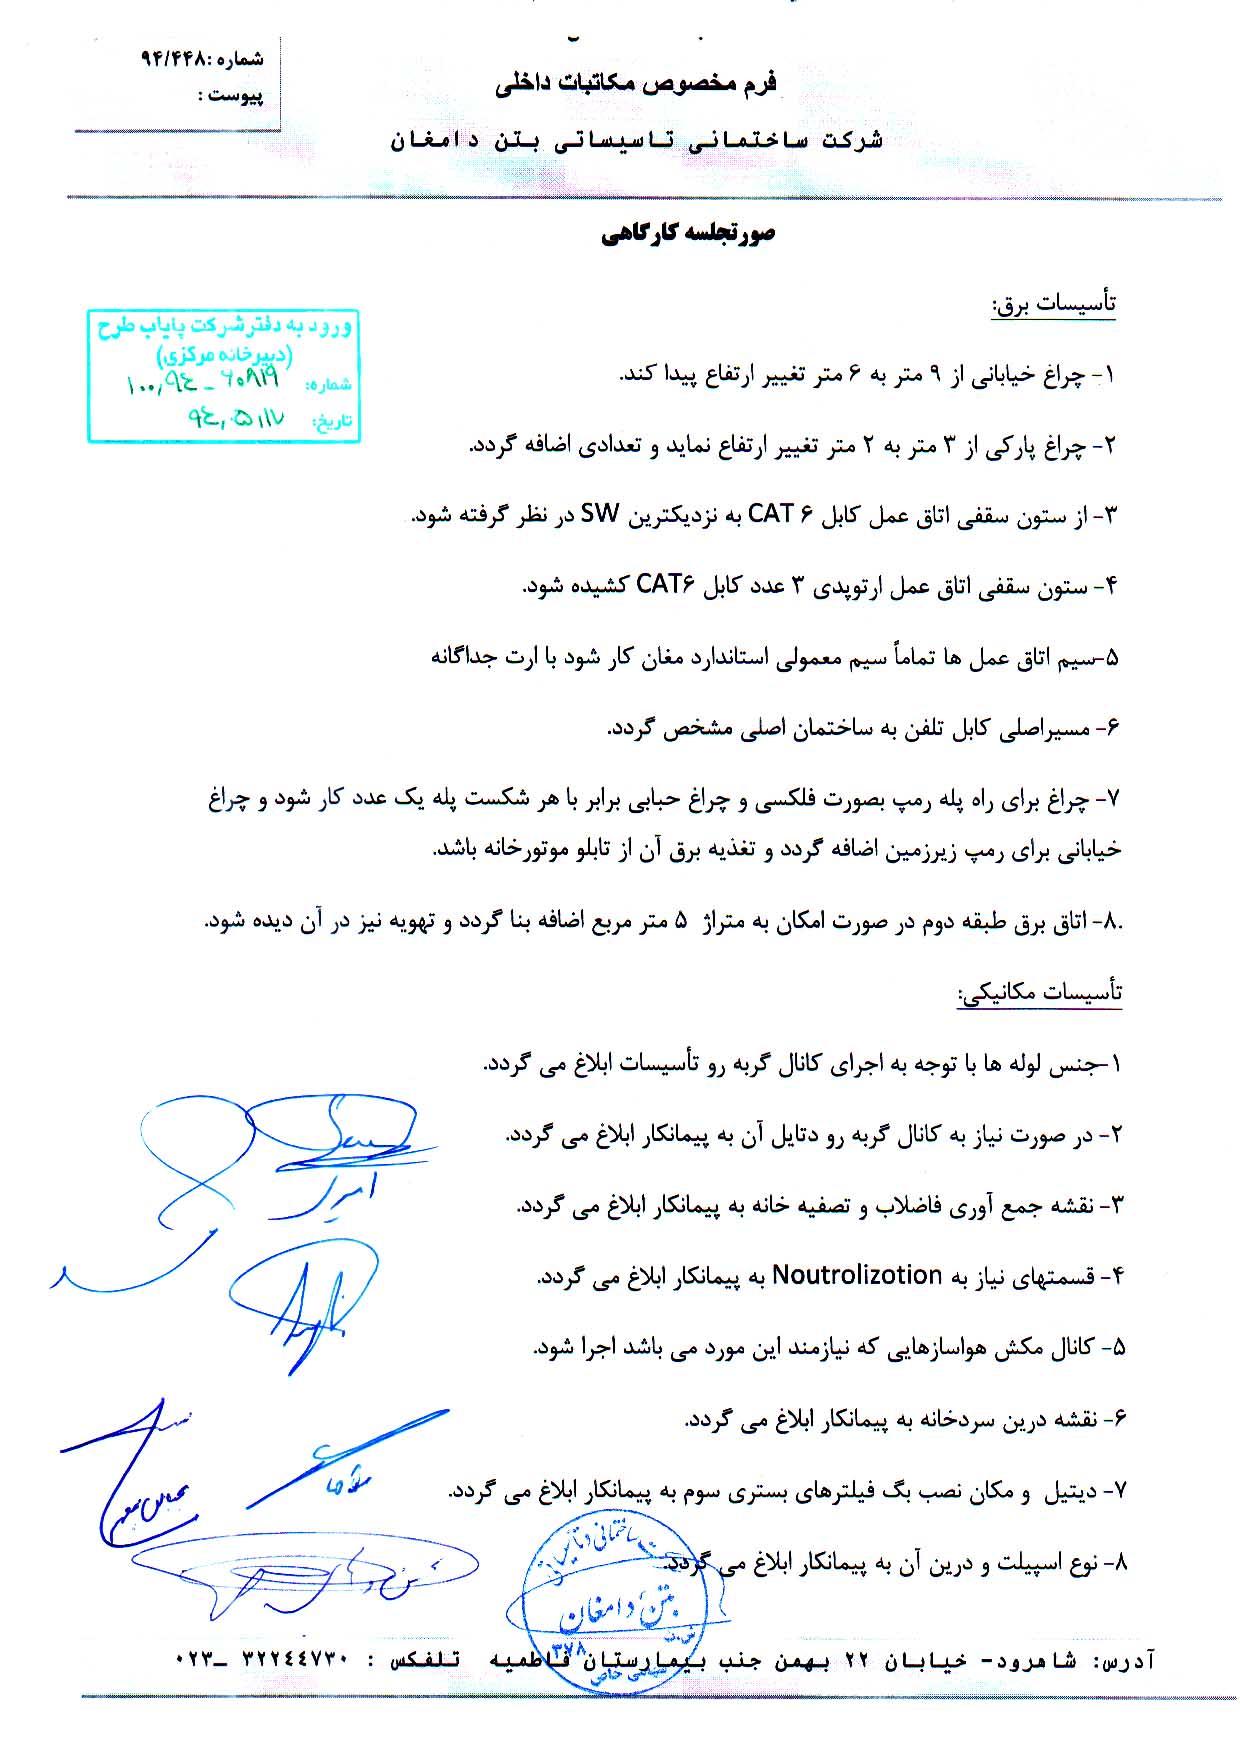 شماره :۹۴/۴۴۸
پیوست :
فرم مخصوص مکاتبات داخلی
شرکت ساختمانی تاسیساتی بتن دامغان
صورتجلسه کارگاهی
تأسیسات برق:
ورود به دفتر شرکت پایاب طرح
(دبیرخانه مرکزی)
شماره:
تاریخ: ۹۴,۰۵,۱۷
۱- چراغ خیابانی از ۹ متر به ۶ متر تغییر ارتفاع پیدا کند.
۲- چراغ پارکی از ۳ متر به ۲ متر تغییر ارتفاع نماید و تعدادی اضافه گردد.
۳- از ستون سقفی اتاق عمل کابل CAT ۶ به نزدیکترین SW در نظر گرفته شود.
۴- ستون سقفی اتاق عمل ارتوپدی ۳ عدد کابل CAT۶ کشیده شود.
۵-سیم اتاق عمل ها تماماً سیم معمولی استاندارد مغان کار شود با ارت جداگانه
۶- مسیراصلی کابل تلفن به ساختمان اصلی مشخص گردد.
۷- چراغ برای راه پله رمپ بصورت فلکسی و چراغ حبابی برابر با هر شکست پله یک عدد کار شود و چراغ
خیابانی برای رمپ زیرزمین اضافه گردد و تغذیه برق آن از تابلو موتورخانه باشد.
.۸- اتاق برق طبقه دوم در صورت امکان به متراژ ۵ متر مربع اضافه بنا گردد و تهویه نیز در آن دیده شود.
تأسیسات مکانیکی:
۱-جنس لوله ها با توجه به اجرای کانال گربه رو تأسیسات ابلاغ می گردد.
۲- در صورت نیاز به کانال گربه رو دتایل آن به پیمانکار ابلاغ می گردد.
۳- نقشه جمع آوری فاضلاب و تصفیه خانه به پیمانکار ابلاغ می گردد.
۴- قسمتهای نیاز به Noutrolizotion به پیمانکار ابلاغ می گردد.
۵- کانال مکش هواسازهایی که نیازمند این مورد می باشد اجرا شود.
۶- نقشه درین سردخانه به پیمانکار ابلاغ می گردد.
۷- دیتیل و مکان نصب بگ فیلترهای بستری سوم به پیمانکار ابلاغ می گردد.
۸- نوع اسپیلت و درین آن به پیمانکار ابلاغ می گردد.
ساختمانی و تأسیساتی
بتن دامغان
۳۷۸
خاص
آدرس: شاهرود- خیابان ۲۲ بهمن جنب بیمارستان فاطمیه تلفکس : ۳۲۲٤٤۷۳۰ -۰۲۳